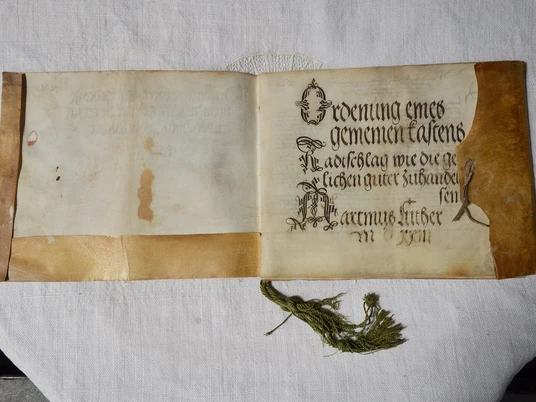 Ordenung eines
gemeinen kastens
Radtschlag wie die ge
lichen guter zuhandel
sen
Martinus Luther